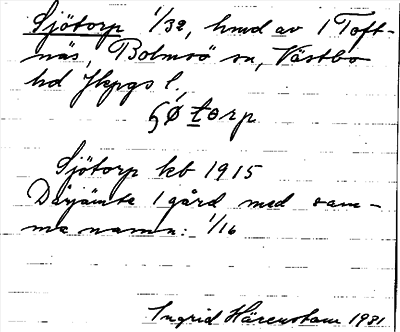 Sjötorp 1/32, hmd av 1 Toft-
näs, Bolmsö sn, Västbo
hd Jkpgs l.
Sjötorp kb 1915
Därjämte 1 gård med sam-
ma namn: 1/16
Ingrid Härenstam 1931